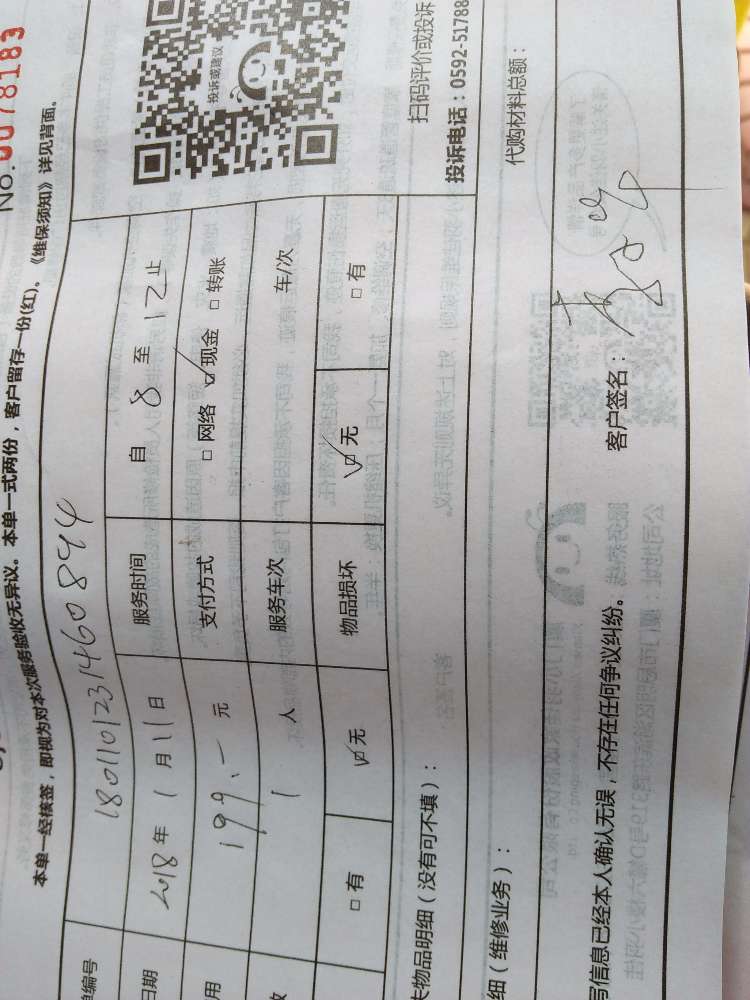 No.0078183
本单一经核签，即视为对本次服务验收无异议。本单一式两份，客户留存一份(红)。《维保须知》详见背面。
单编号 180110123146 0894
日期 2018年 1月11日 服务时间 自 8 至 12 止
用 199.- 元 支付方式 □网络 ☑现金 □转账
数 1 人 服务车次 车/次
□有 ☑无 物品损坏 ☑无 □有
投诉或建议
扫码评价或投诉
投诉电话：0592-51788
失物品明细（没有可不填）：
细（维修业务）：
代购材料总额：
写信息已经本人确认无误，不存在任何争议纠纷。 客户签名：